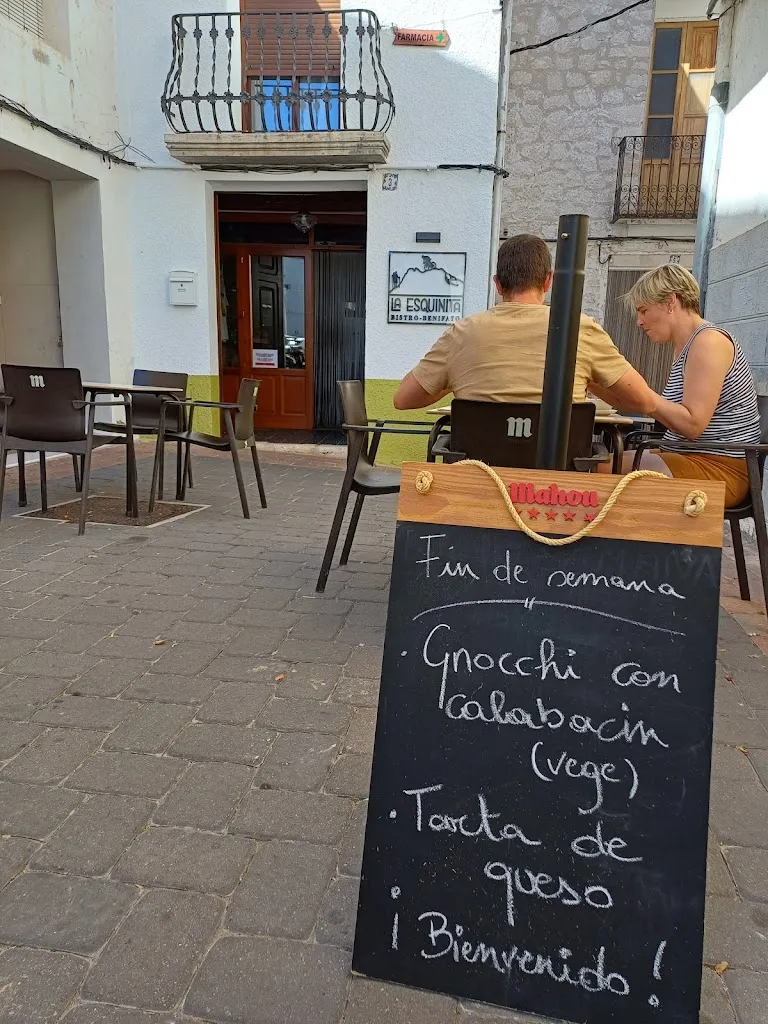 FARMACIA
LA ESQUINITA
BISTRO-BENIFATO
m
m
Mahou
Fin de semana
· Gnocchi con
calabacin
(vege)
· Tarta de
queso
¡Bienvenido!